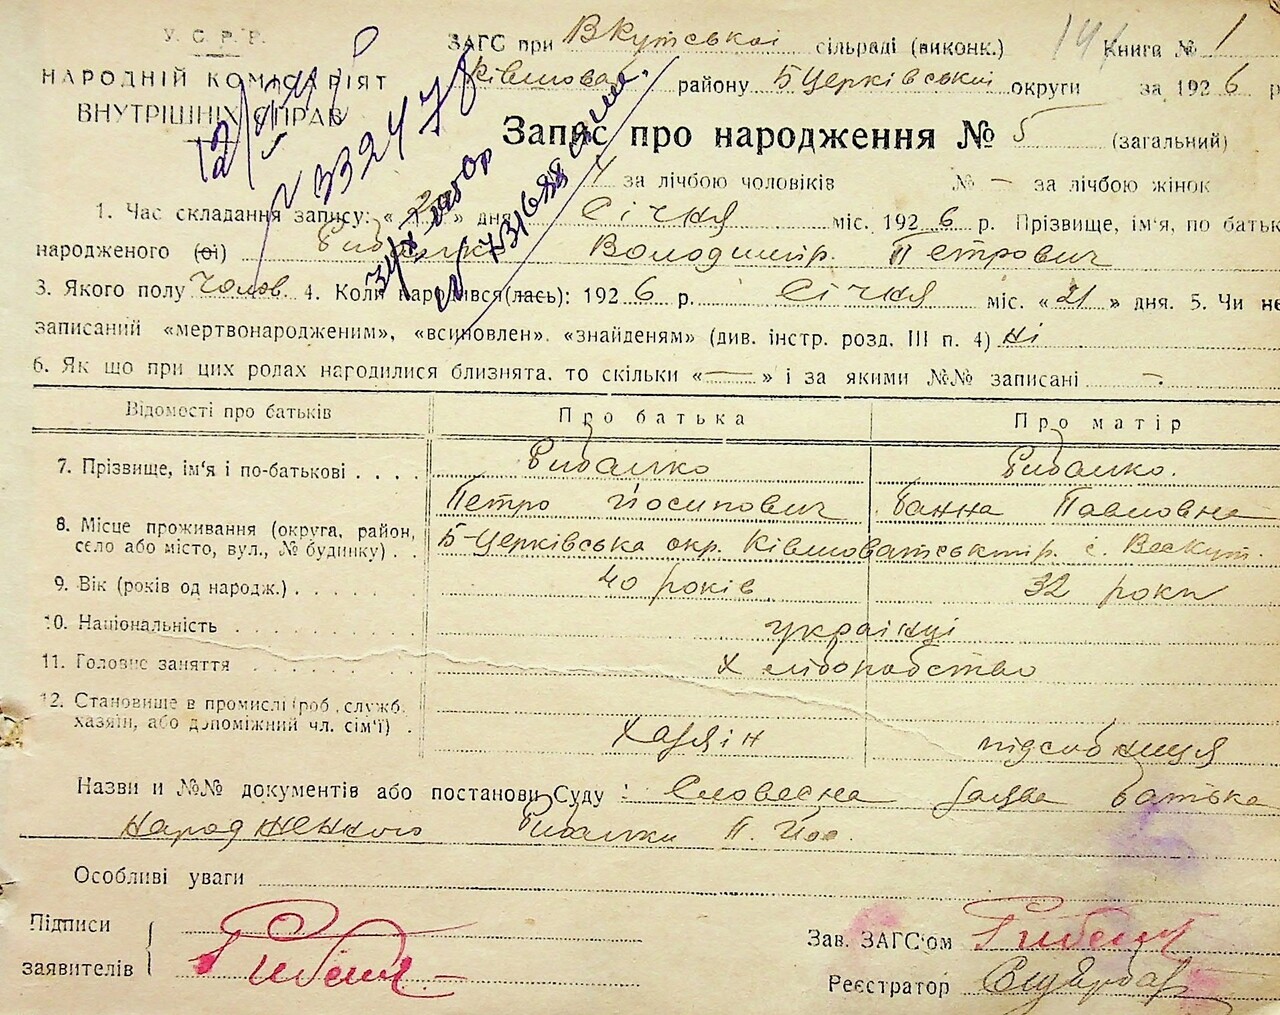 У. С. Р. Р.
НАРОДНІЙ КОМІСАРІЯТ
ВНУТРІШНІХ СПРАВ
ЗАГС при Вкутської сільраді (виконк.) Книга № 1
району Б Церківський округи за 192 6 р
№ 332478
№ 731688
Запис про народження № 5 (загальний)
за лічбою чоловіків № — за лічбою жінок
1. Час складання запису: « » дня Січня міс. 192 6 р. Прізвище, ім'я, по батьк
народженого (ої) Володимір. Петрович
3. Якого полу Чолов. 4. Коли народився(лась): 192 6 р. Січня міс. « 21 » дня. 5. Чи не
записаний «мертвонародженим», «всиновлен», «знайденям» (див. інстр. розд. III п. 4) ні
6. Як що при цих ролах нагодилися близнята, то скільки « — » і за якими №№ записані —
Відомості про батьків Про батька Про матір
7. Прізвище, ім'я і по-батькові . . . . Рибалко Рибалко.
Петро Йосипович Ганна Павловна
8. Місце проживання (округа, район, село або місто, вул., № будинку) . . Б-Церківська окр. Ківшоватський р. с.
9. Вік (років од народж.) . . . . . . 40 років 32 роки
10. Національність . . . . . . . . українці
11. Головне заняття . . . . . . . хліборобство
12. Становище в промислі (роб., служб. хазяїн, або допоміжний чл. сім'ї) . Хазяїн підсобниця
Назви и №№ документів або постанови Суду : Словесна заява батька
народженного Рибалки П. Йос.
Особливі уваги
Підписи
заявителів
Зав. ЗАГС'ом
Реєстратор